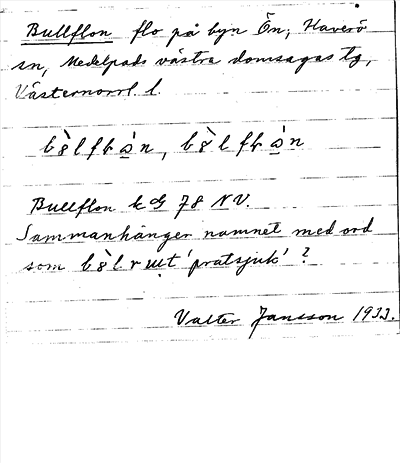 Bullflon flo på byn Ön, Haverö
sn, Medelpads västra domsagas tg,
Västernorrl. l.
Bullflon k G 78 NV.
Sammanhänger namnet med ord
som 'pratsjuk' ?
Valter Jansson 1933.